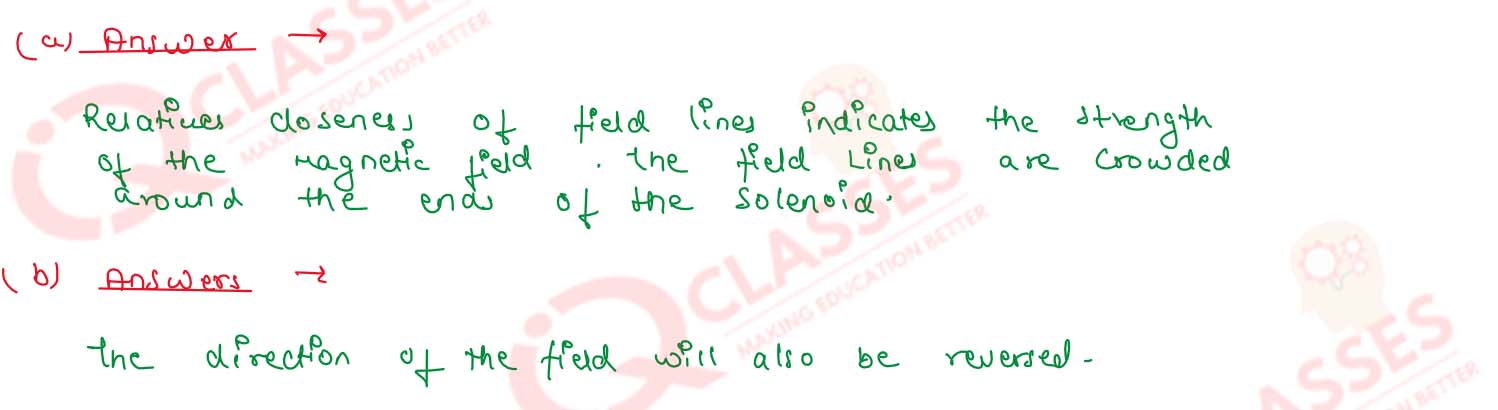 (a) Answer →
Relatives closeness of field lines indicates the strength
of the magnetic field . the field Lines are crowded
around the ends of the solenoid.
(b) Answers →
The direction of the field will also be reversed-
iQ CLASSES
MAKING EDUCATION BETTER
iQ CLASSES
MAKING EDUCATION BETTER
ASSES
BETTER